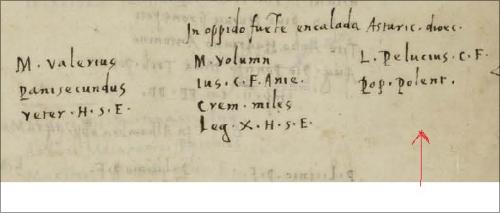 In oppido fuēte encalada Asturic. dioec.
M. Valerius
Pansecundus
veter. H. S. E.
M. Volumn
ius. C. F. Anie.
Crem. miles
Leg. X. H. S. E.
L. Pelucius. C. F.
Pop. Polent.